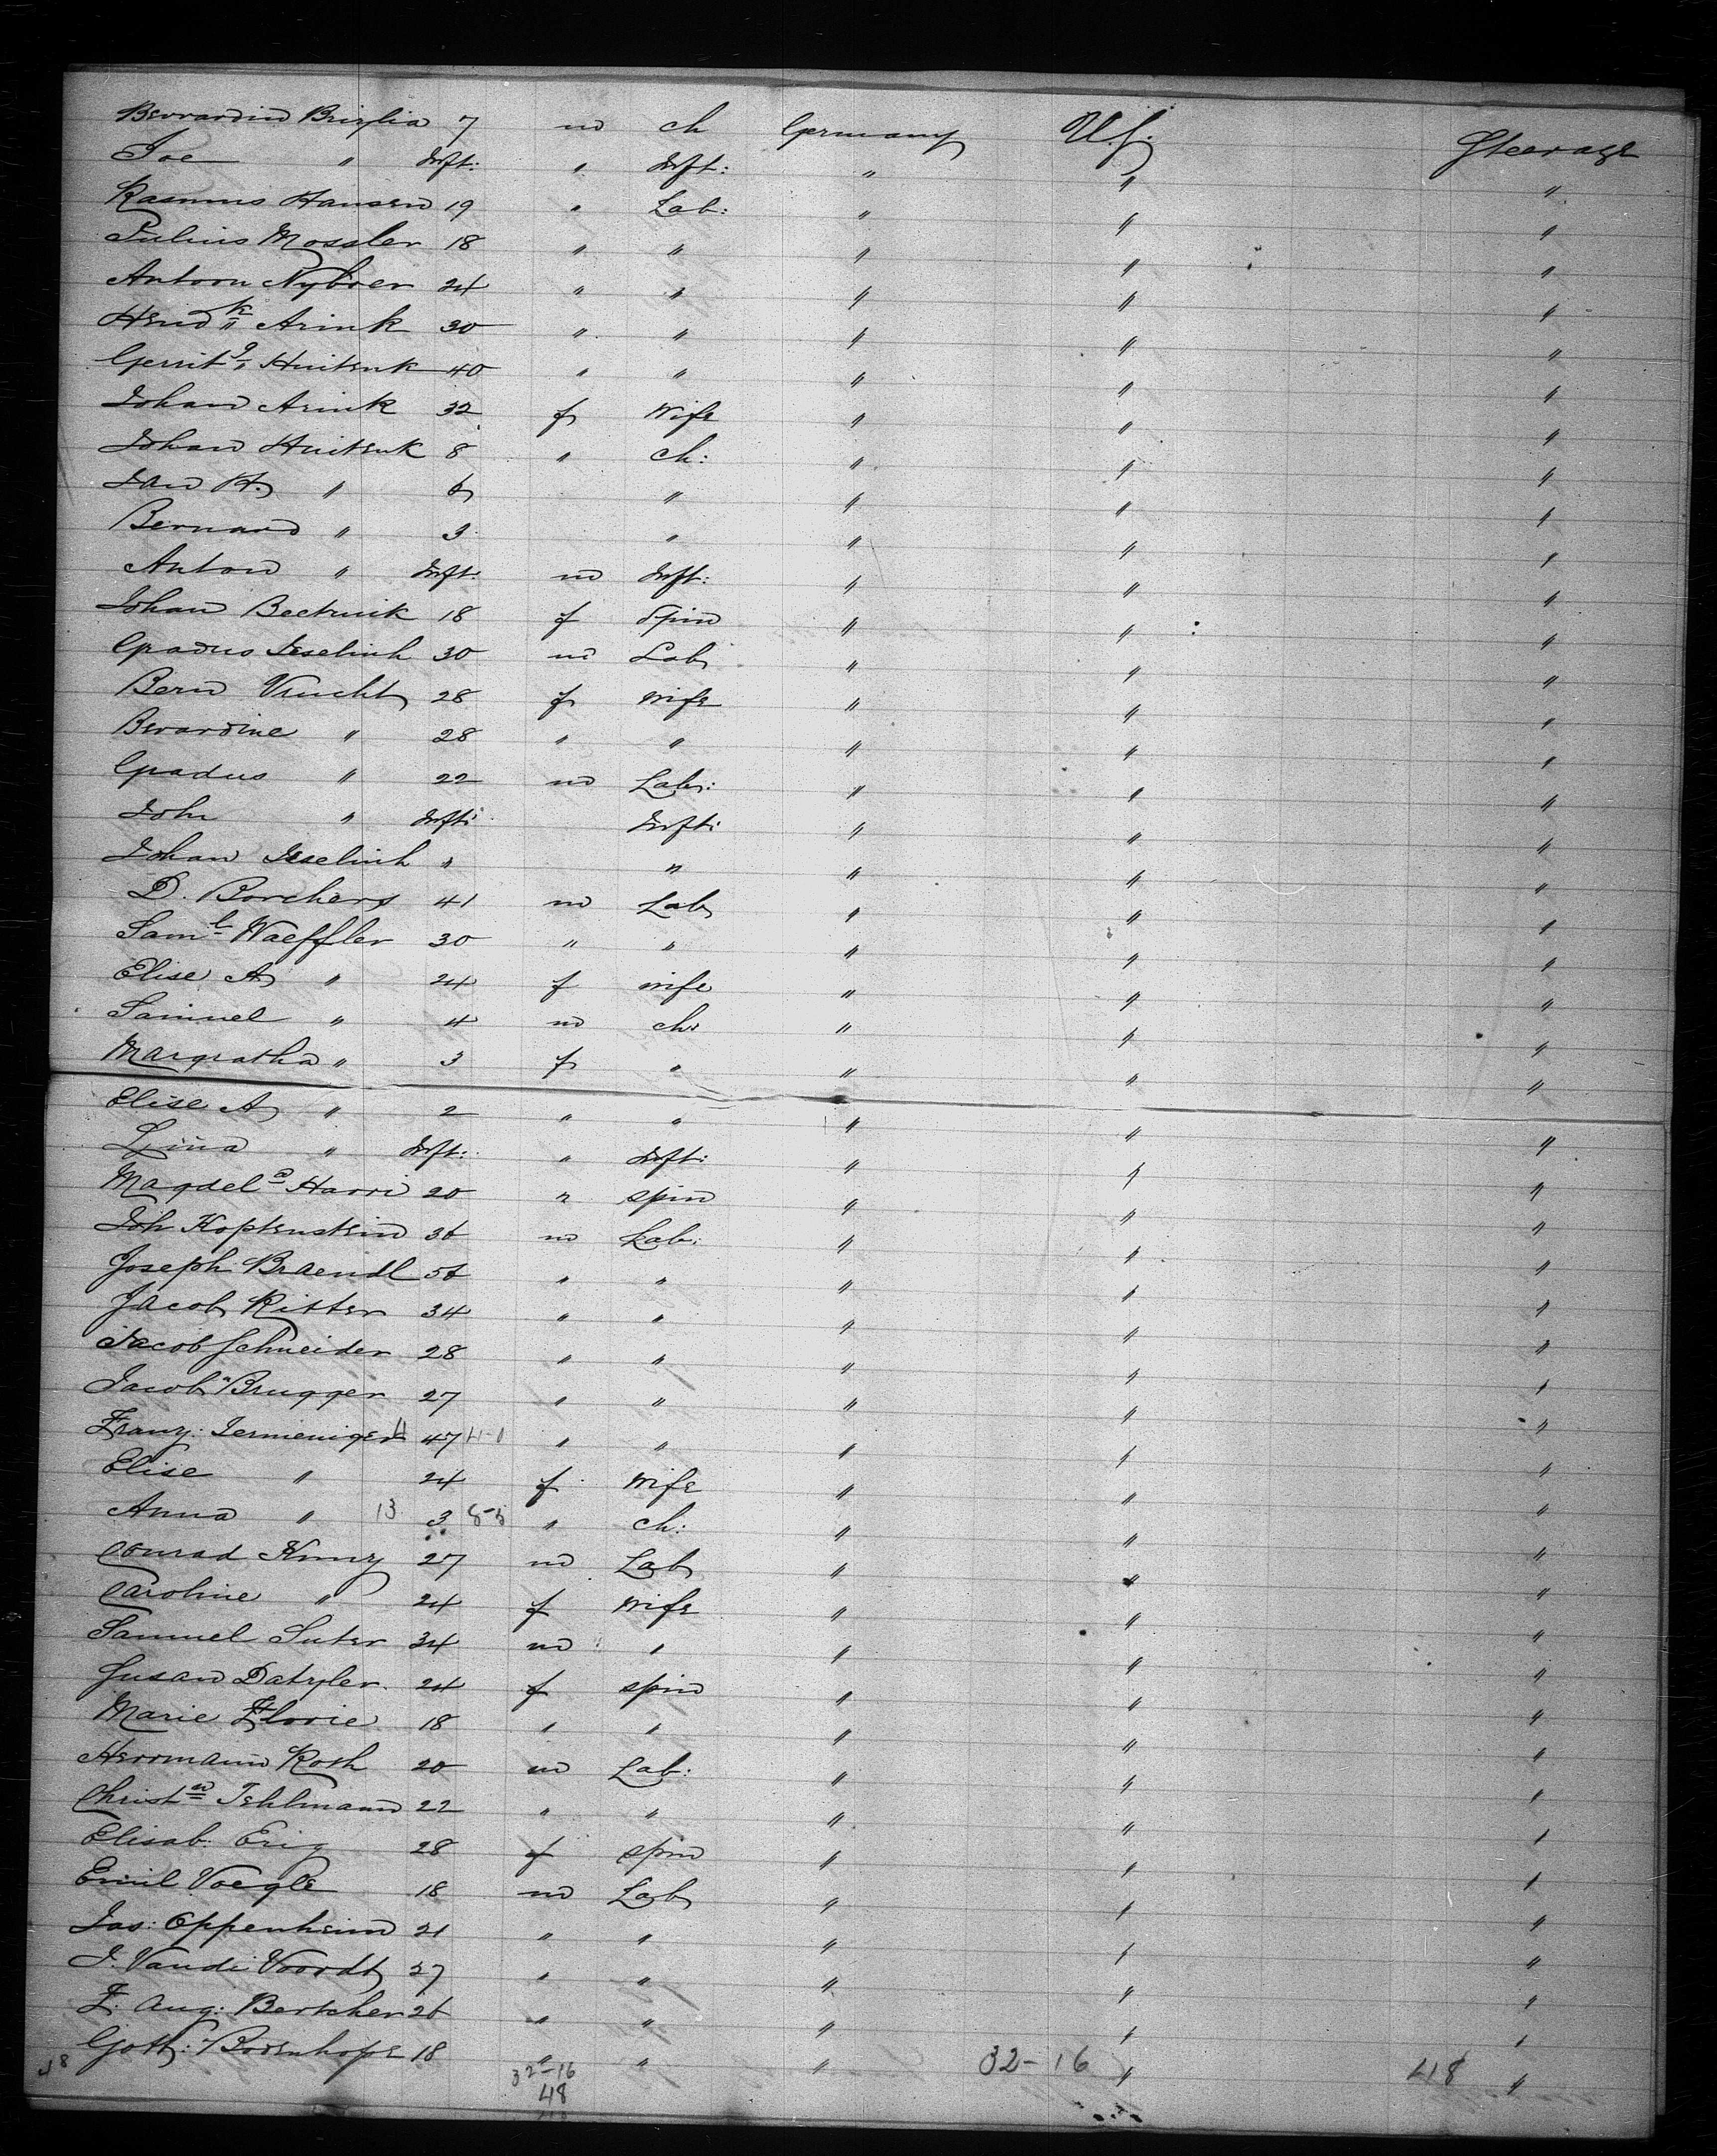 7 m ch Germany U.S. Steerage
Joe " Inft: " Inft: " " "
Rasmus Hansen 19 " Lab: " " "
Julius Mossler 18 " " " " "
Antoon Nyboer 24 " " " " "
Hendk Arink 30 " " " " "
Gerrit 40 " " " " "
Johan Arink 32 f Wife " " "
Johan 8 " ch: " " "
Jan H. " 6 " " " "
Bernard " 3 " " " "
Anton " Inft. m Inft: " " "
Johan 18 f Spin " " "
30 m Lab " " "
Bern 28 f Wife " " "
Berardine " 28 " " " " "
" 22 m Lab: " " "
Joh " Inft: Inft: " " "
Johan " " " " "
D. Borchers 41 m Lab " " "
Saml Waeffler 30 " " " " "
Elise A " 24 f wife " " "
Samuel " 4 m ch: " " "
Margratha " 3 f " " " "
Elise A " 2 " " " " "
Lina " Inft: " Inft: " " "
Magdela Harri 20 " spin " " "
Joh Koptenstein 36 m Lab: " " "
Joseph Braendl 56 " " " " "
Jacob Ritter 34 " " " " "
Jacob Schneider 28 " " " " "
Jacob Brugger 27 " " " " "
Franz: 47 " " " " "
Elise " 24 f Wife " " "
Anna " 13 3 " ch: " " "
Conrad Kunz 27 m Lab " " "
Caroline " 24 f Wife " " "
Samuel Suter 34 m " " " "
Susan Datzler 24 f spin " " "
Marie Florie 18 " " " " "
Herrmann Roth 20 m Lab: " " "
Christn Tehlmann 22 " " " " "
Elisab: Erig 28 f spin " " "
Emil Voegle 18 m Lab " " "
Jas: Oppenheim 21 " " " " "
J. Vande Voordt 27 " " " " "
F. Aug: Bertcher 26 " " " " "
Gott: Bodenhope 18 " " " " "
32-16 32-16 48
48